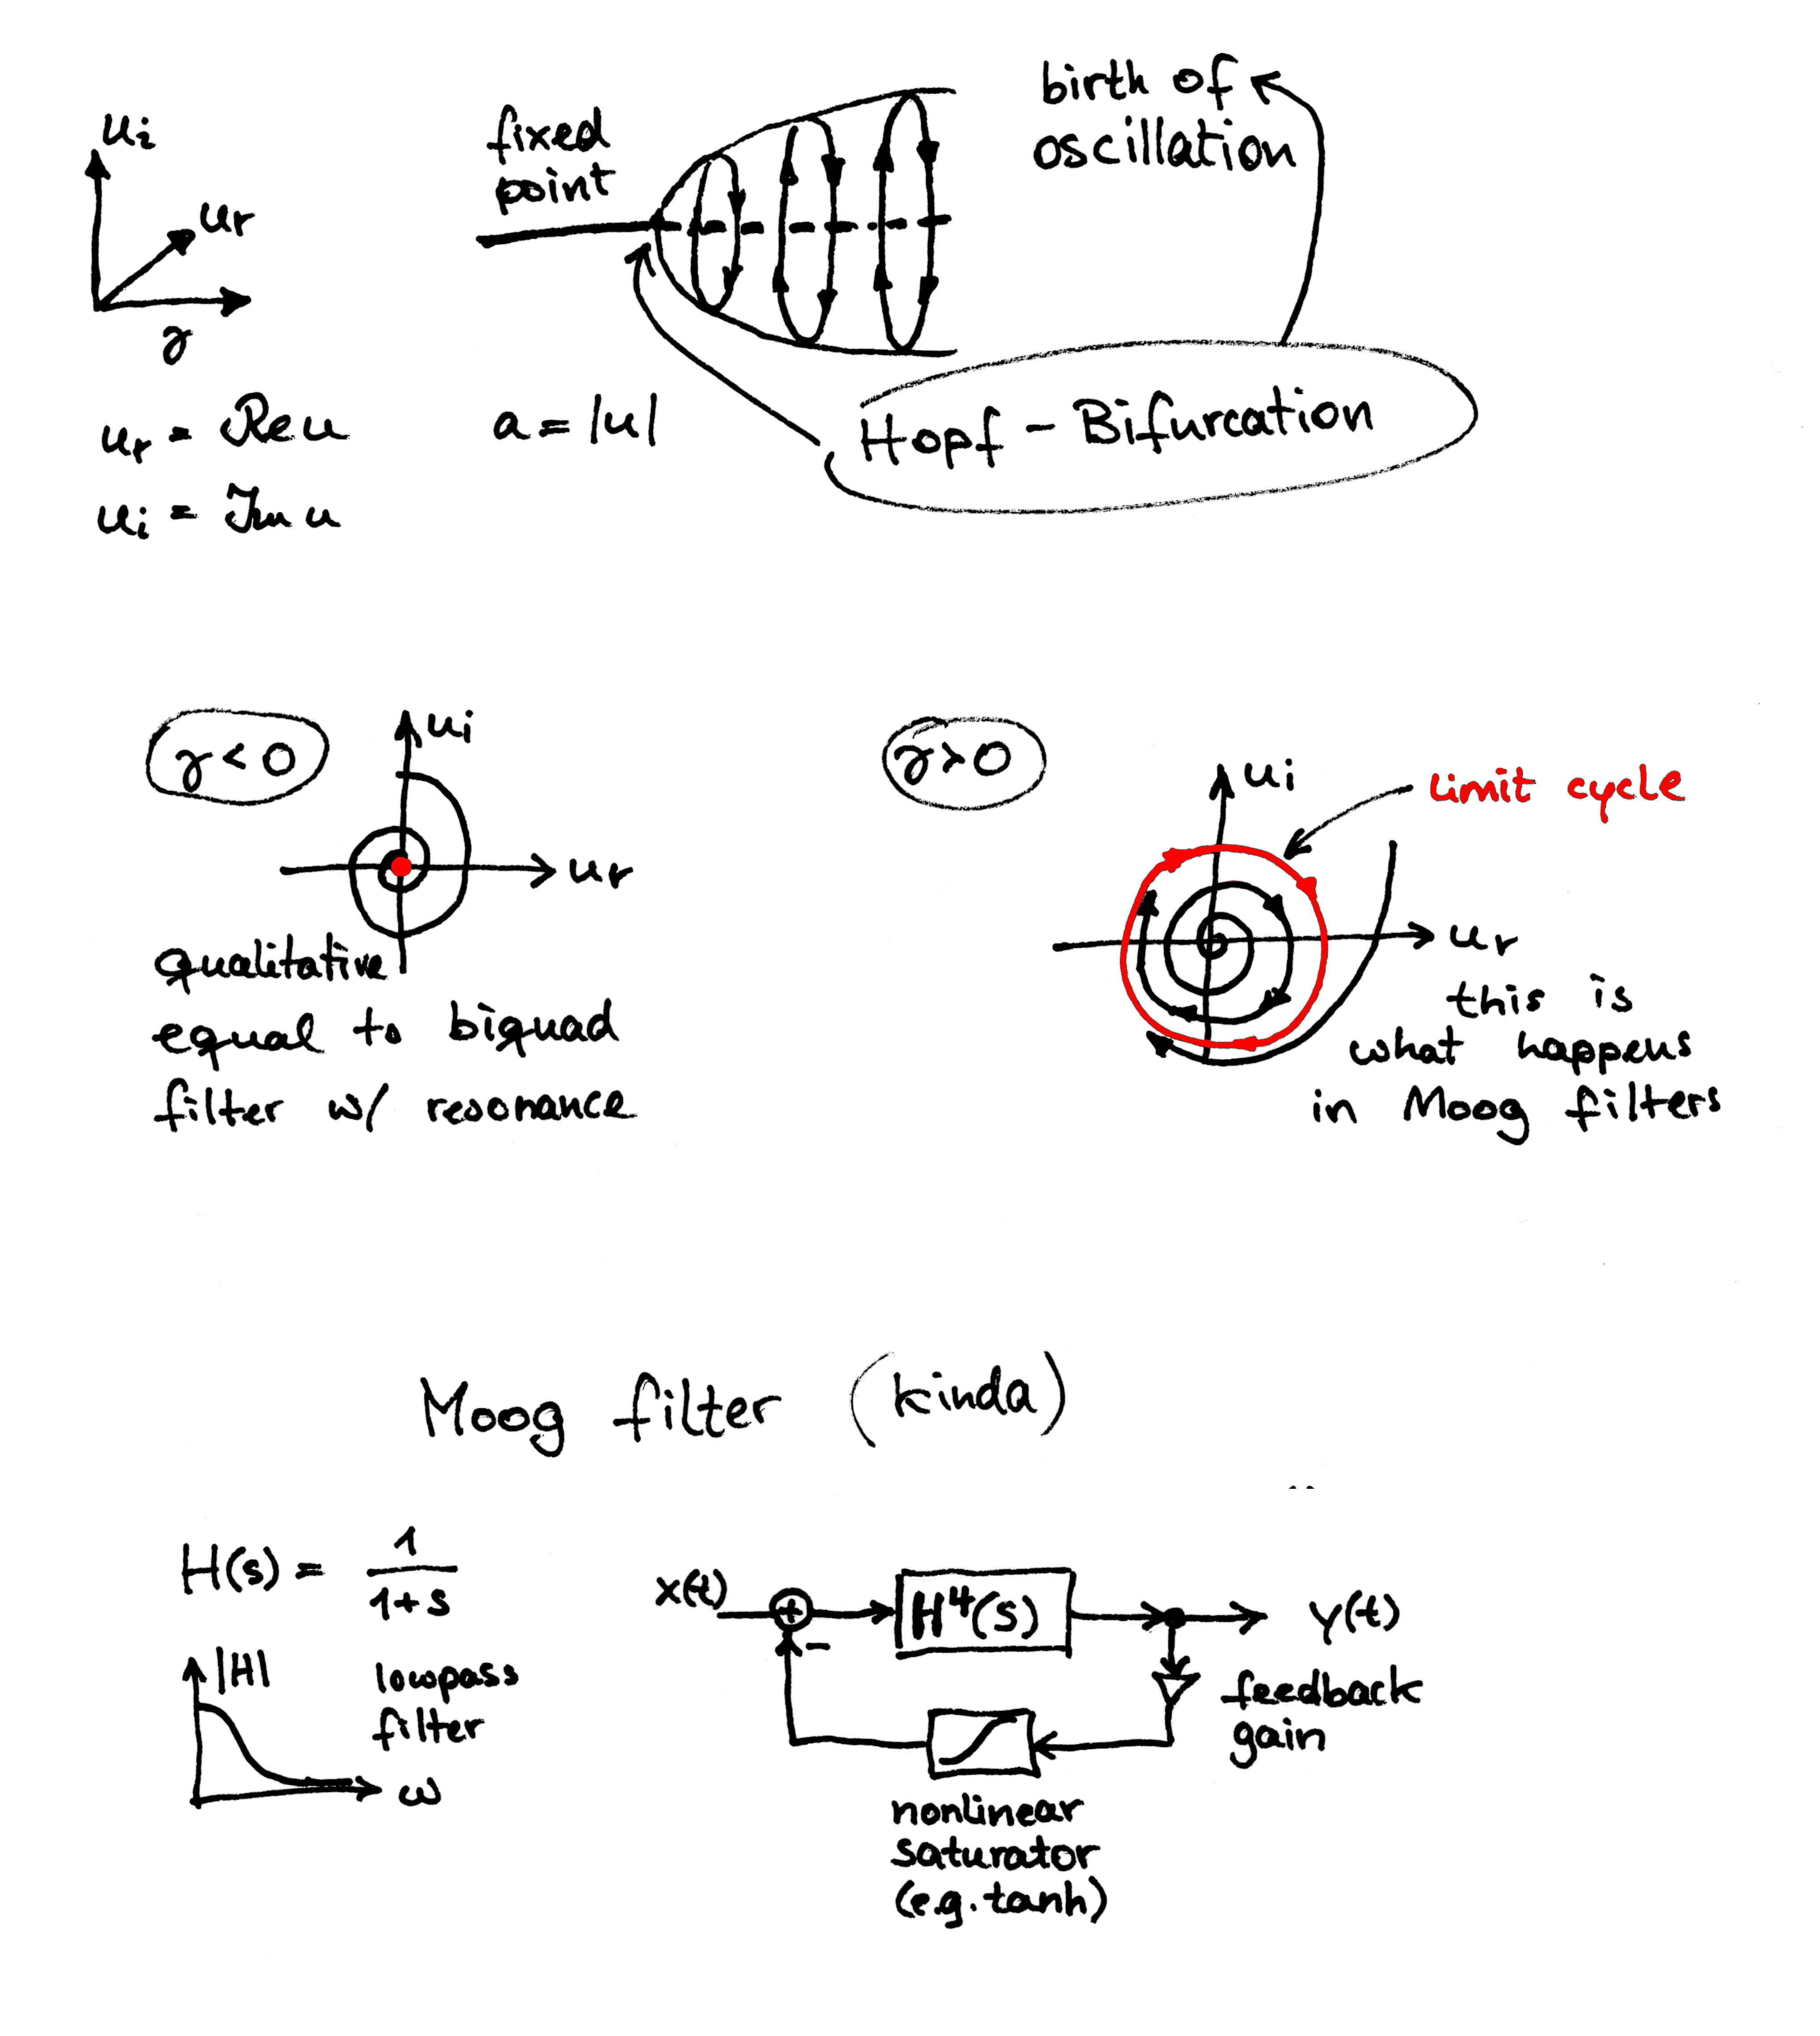 birth of
oscillation
fixed
point
ui
ur
γ
ur = Re u
ui = Im u
a = |u|
Hopf - Bifurcation
γ < 0
ui
ur
qualitative
equal to biquad
filter w/ resonance
γ > 0
ui
limit cycle
ur
this is
what happens
in Moog filters
Moog filter (kinda)
H(s) = 1/(1+s)
|H|
lowpass
filter
ω
x(t)
+
-
H⁴(s)
y(t)
feedback
gain
nonlinear
saturator
(e.g. tanh)